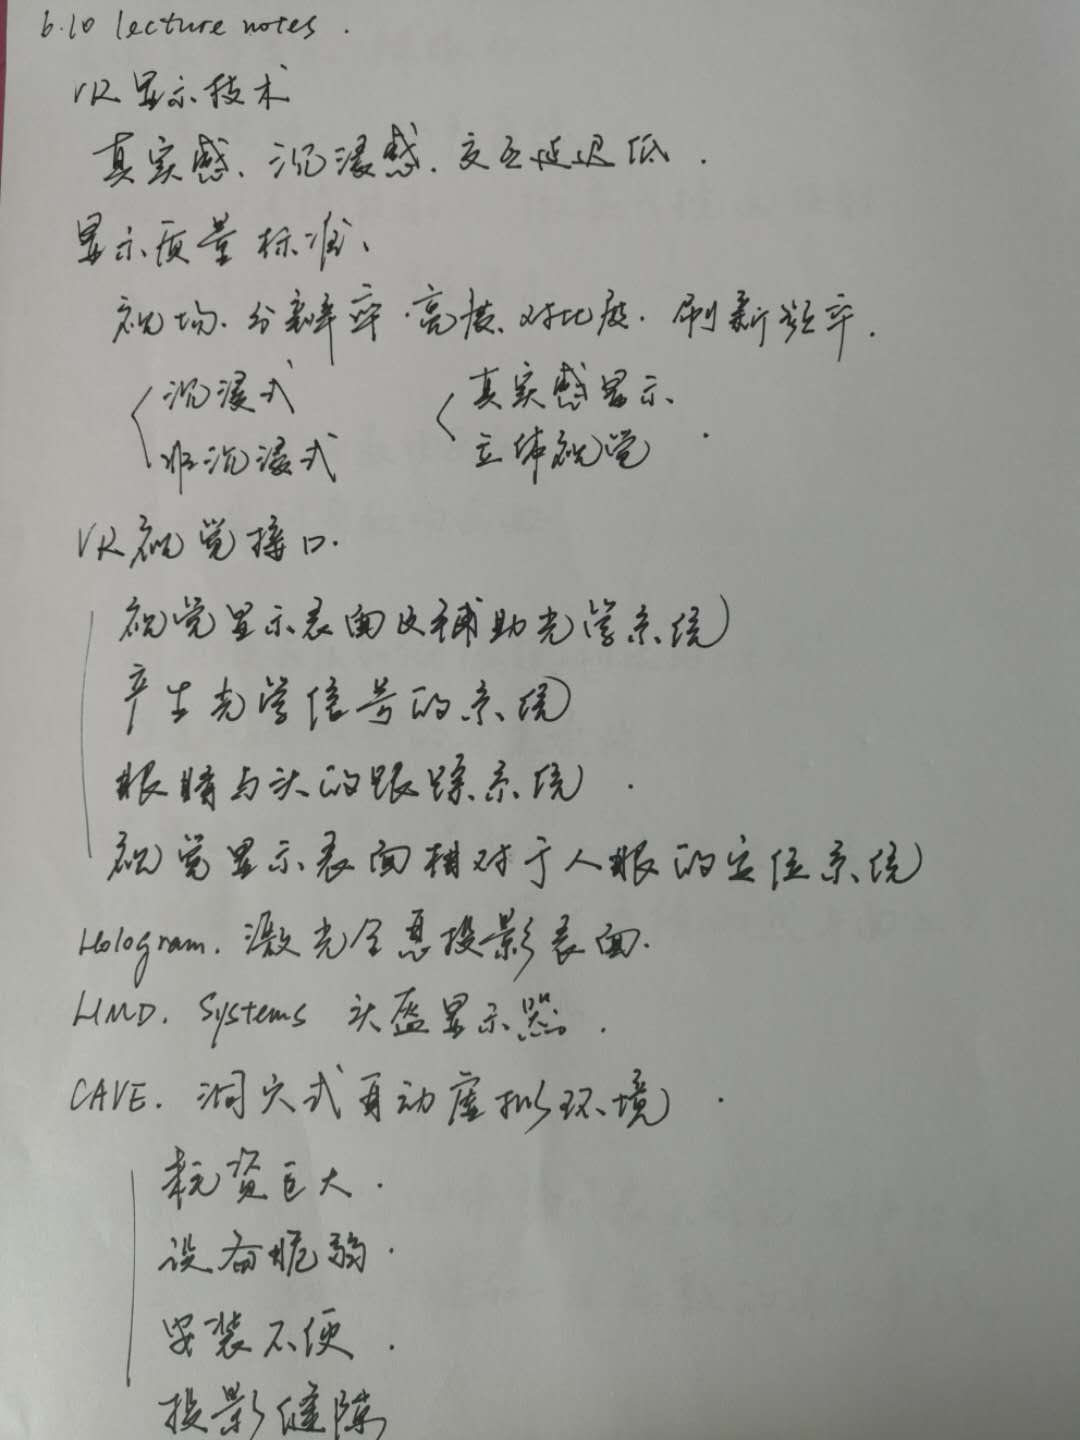 6.10 lecture notes.
VR显示技术
真实感、沉浸感、交互延迟低.
显示质量标准、
视场.分辨率.亮度、对比度.刷新频率.
沉浸式 真实感显示、
非沉浸式 立体视觉.
VR视觉接口.
视觉显示表面及辅助光学系统
产生光学信号的系统
眼睛与头的跟踪系统.
视觉显示表面相对于人眼的定位系统
Hologram.激光全息投影表面.
HMD. Systems 头盔显示器.
CAVE.洞穴式自动虚拟环境.
耗资巨大.
设备脆弱.
安装不便.
投影缝隙